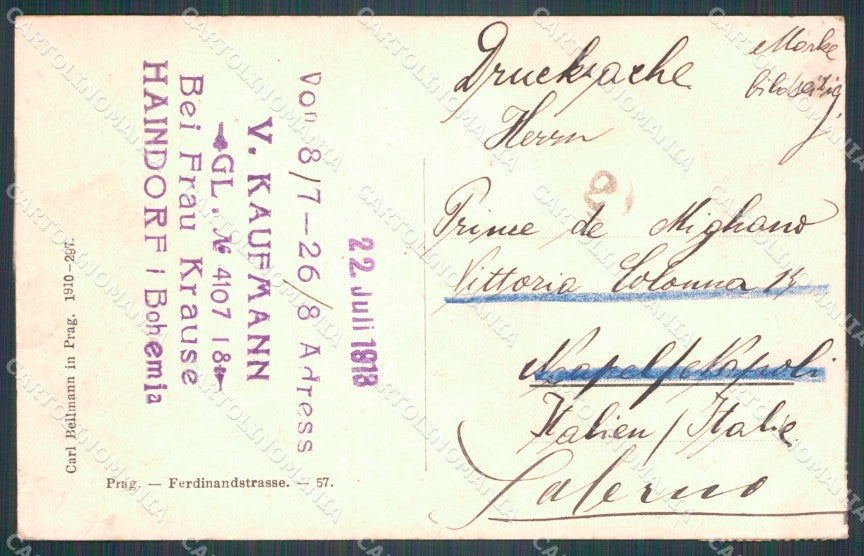 Von 8/7-26/8 Adress
V. KAUFMANN
GL. № 4107 18
Bei Frau Krause
HAINDORF i Bohemia
22. Juli 1913
Carl Bellmann in Prag. 1910-297.
Prag. — Ferdinandstrasse. — 57.
Drucksache
Marke
bildseitig
Herrn
Prince de Mighano
Vittoria Colonna
Neapel/Napoli
Italien/Italie
Salerno
CARTOLINOMANIA